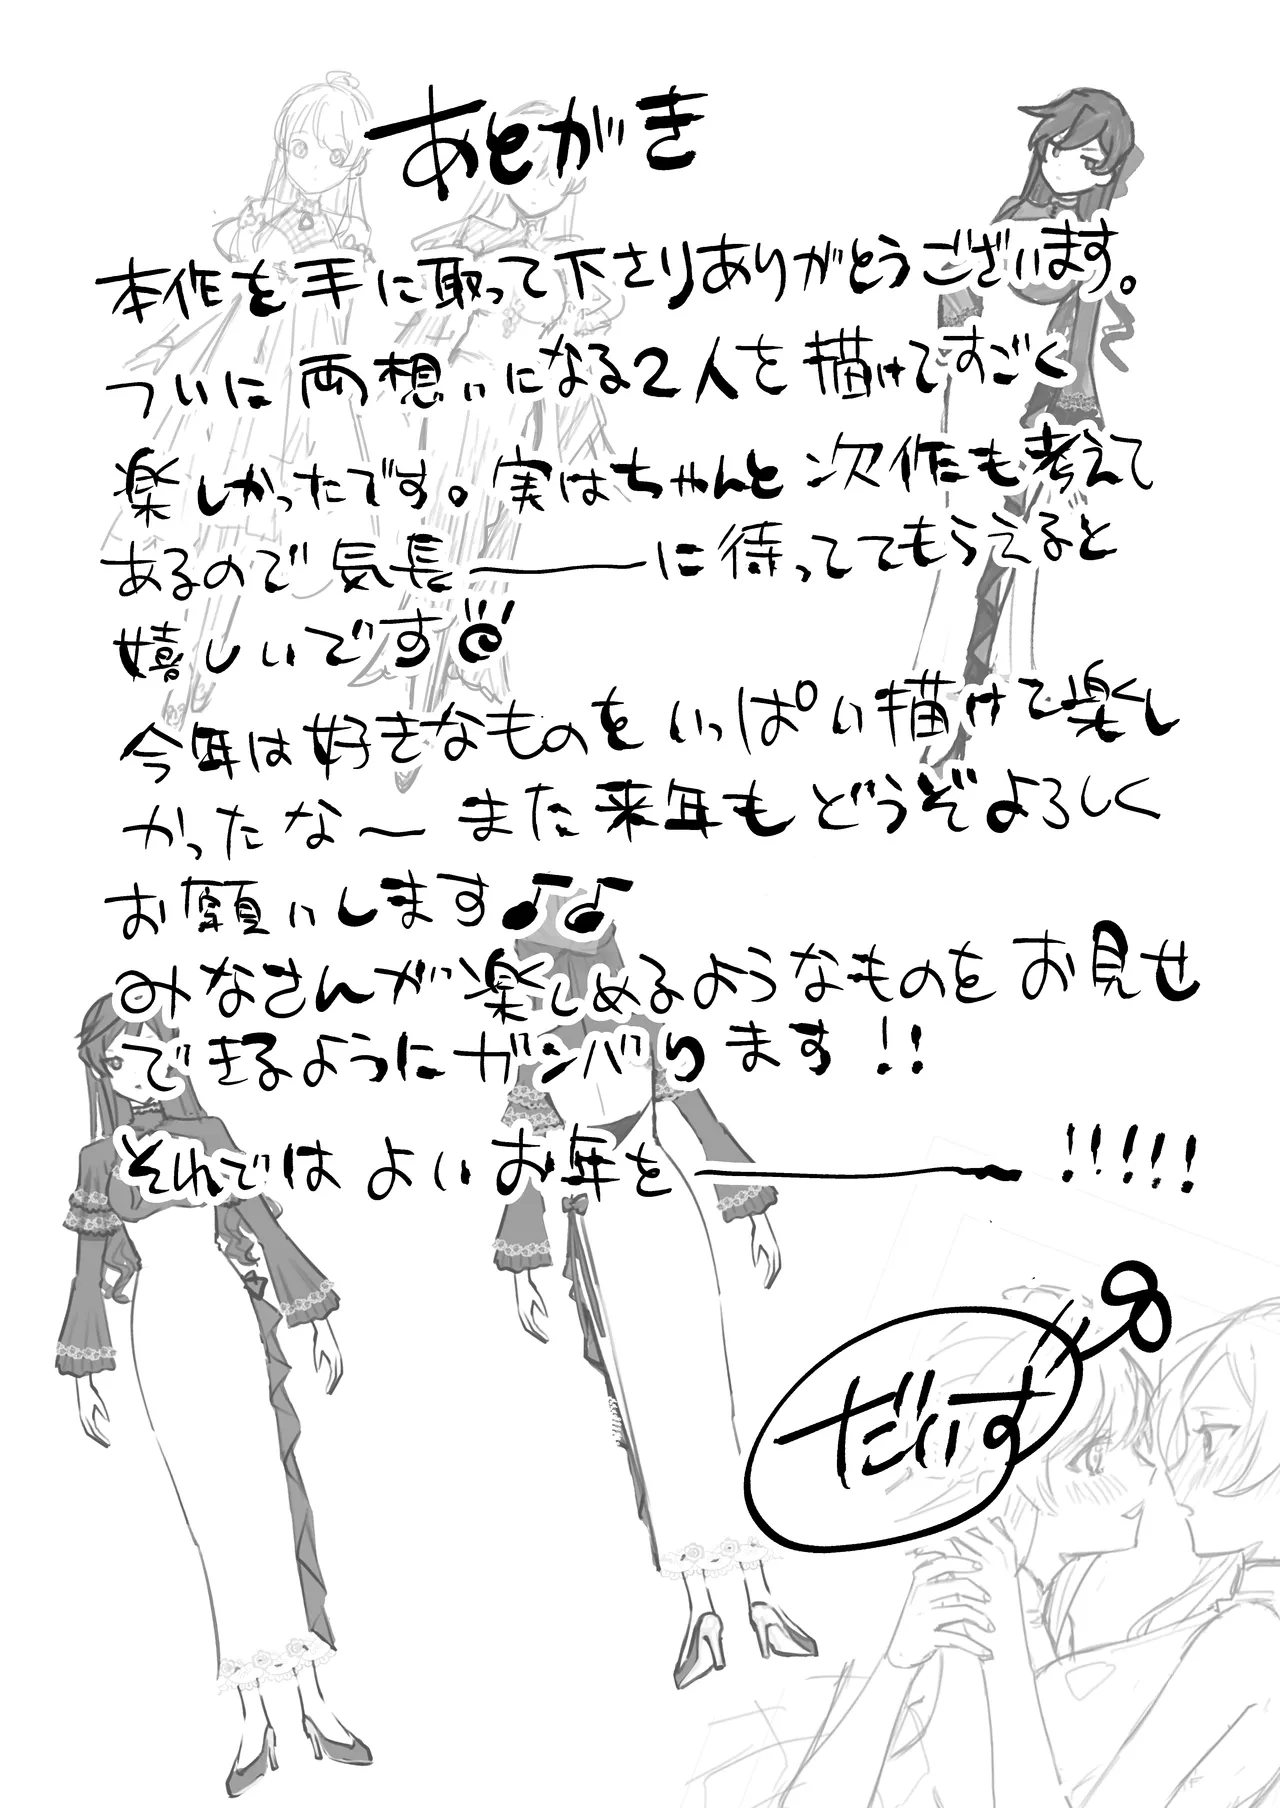 あとがき
本作を手に取って下さりありがとうございます。
ついに両想いになる2人を描けてすごく
楽しかったです。実はちゃんと次作も考えて
あるので気長――――に待っててもらえると
嬉しいです
今年は好きなものをいっぱい描けて楽し
かったな〜また来年もどうぞよろしく
お願いします♪♪
みなさんが楽しめるようなものをお見せ
できるようにガンバります!!
それではよいお年を――――――!!!!!
だいず